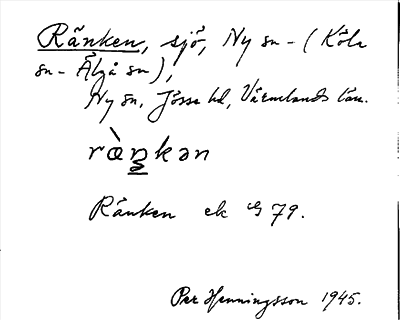 Ränken, sjö, Ny sn - (Köla
sn - Älgå sn),
Ny sn, Jösse hd, Värmlands län.
ràŋkən
Ränken ek G 79.
Per Henningsson 1945.